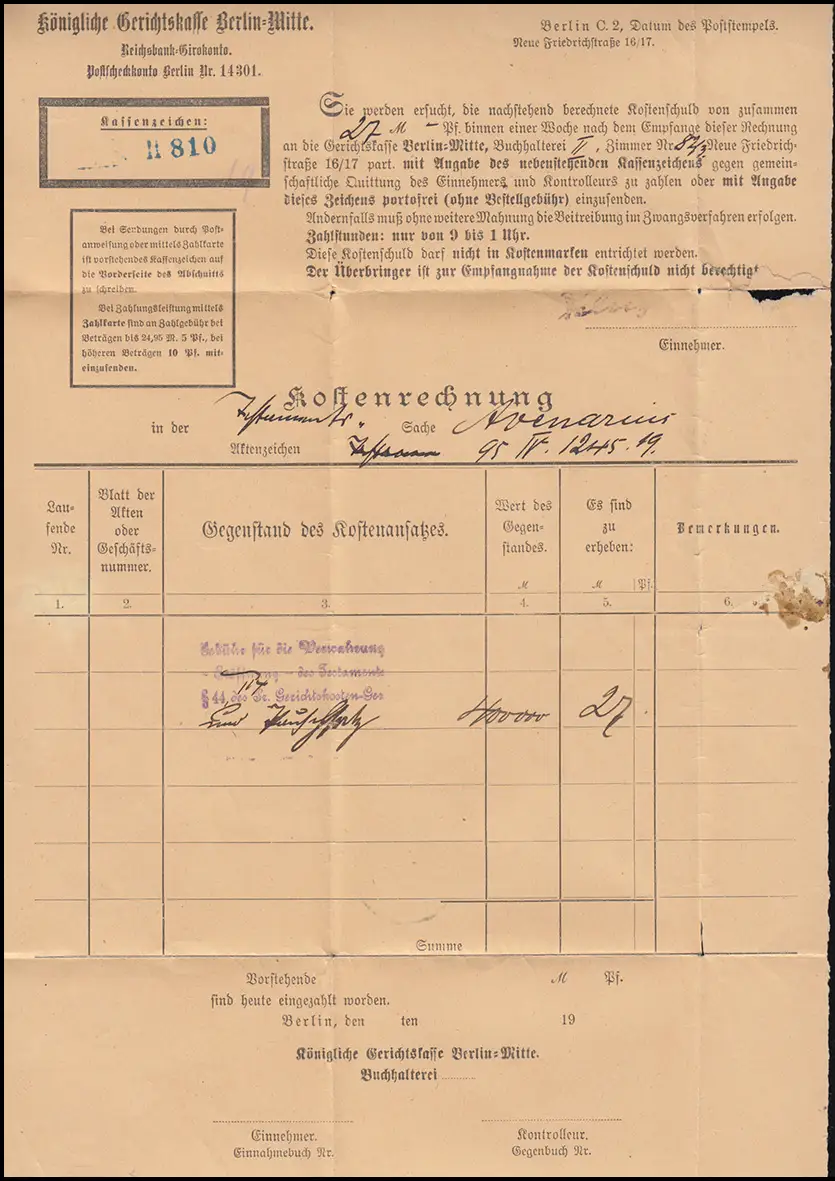 Königliche Gerichtskasse Berlin=Mitte.
Reichsbank-Girokonto.
Postscheckkonto Berlin Nr. 14301.
Berlin C. 2, Datum des Poststempels.
Neue Friedrichstraße 16/17.
Kassenzeichen:
H 810
Sie werden ersucht, die nachstehend berechnete Kostenschuld von zusammen
27 M – Pf. binnen einer Woche nach dem Empfange dieser Rechnung
an die Gerichtskasse Berlin-Mitte, Buchhalterei II, Zimmer Nr. Neue Friedrich-
straße 16/17 part. mit Angabe des nebenstehenden Kassenzeichens gegen gemein-
schaftliche Quittung des Einnehmers und Kontrolleurs zu zahlen oder mit Angabe
dieses Zeichens portofrei (ohne Bestellgebühr) einzusenden.
Andernfalls muß ohne weitere Mahnung die Beitreibung im Zwangsverfahren erfolgen.
Zahlstunden: nur von 9 bis 1 Uhr.
Diese Kostenschuld darf nicht in Kostenmarken entrichtet werden.
Der Überbringer ist zur Empfangnahme der Kostenschuld nicht berechtigt
Bei Sendungen durch Post-
anweisung oder mittels Zahlkarte
ist vorstehendes Kassenzeichen auf
die Vorderseite des Abschnitts
zu schreiben.
Bei Zahlungsleistung mittels
Zahlkarte sind an Zahlgebühr bei
Beträgen bis 24,95 M. 5 Pf., bei
höheren Beträgen 10 Pf. mit-
einzusenden.
Einnehmer.
Kostenrechnung
in der Testaments- Sache Avenarius
Aktenzeichen 95 IV. 1245. 19.
Lau-
fende
Nr.
Blatt der
Akten
oder
Geschäfts-
nummer.
Gegenstand des Kostenansatzes.
Wert des
Gegen-
standes.
M
Es sind
zu
erheben:
M Pf.
Bemerkungen.
1. 2. 3. 4. 5. 6.
Gebühr für die Verwahrung
- Eröffnung - des Testaments
§ 44, des Pr. Gerichtskosten-Ges
und Pauschsatz 400000 27
Summe
Vorstehende M Pf.
sind heute eingezahlt worden.
Berlin, den ten 19
Königliche Gerichtskasse Berlin=Mitte.
Buchhalterei
Einnehmer.
Einnahmebuch Nr.
Kontrolleur.
Gegenbuch Nr.